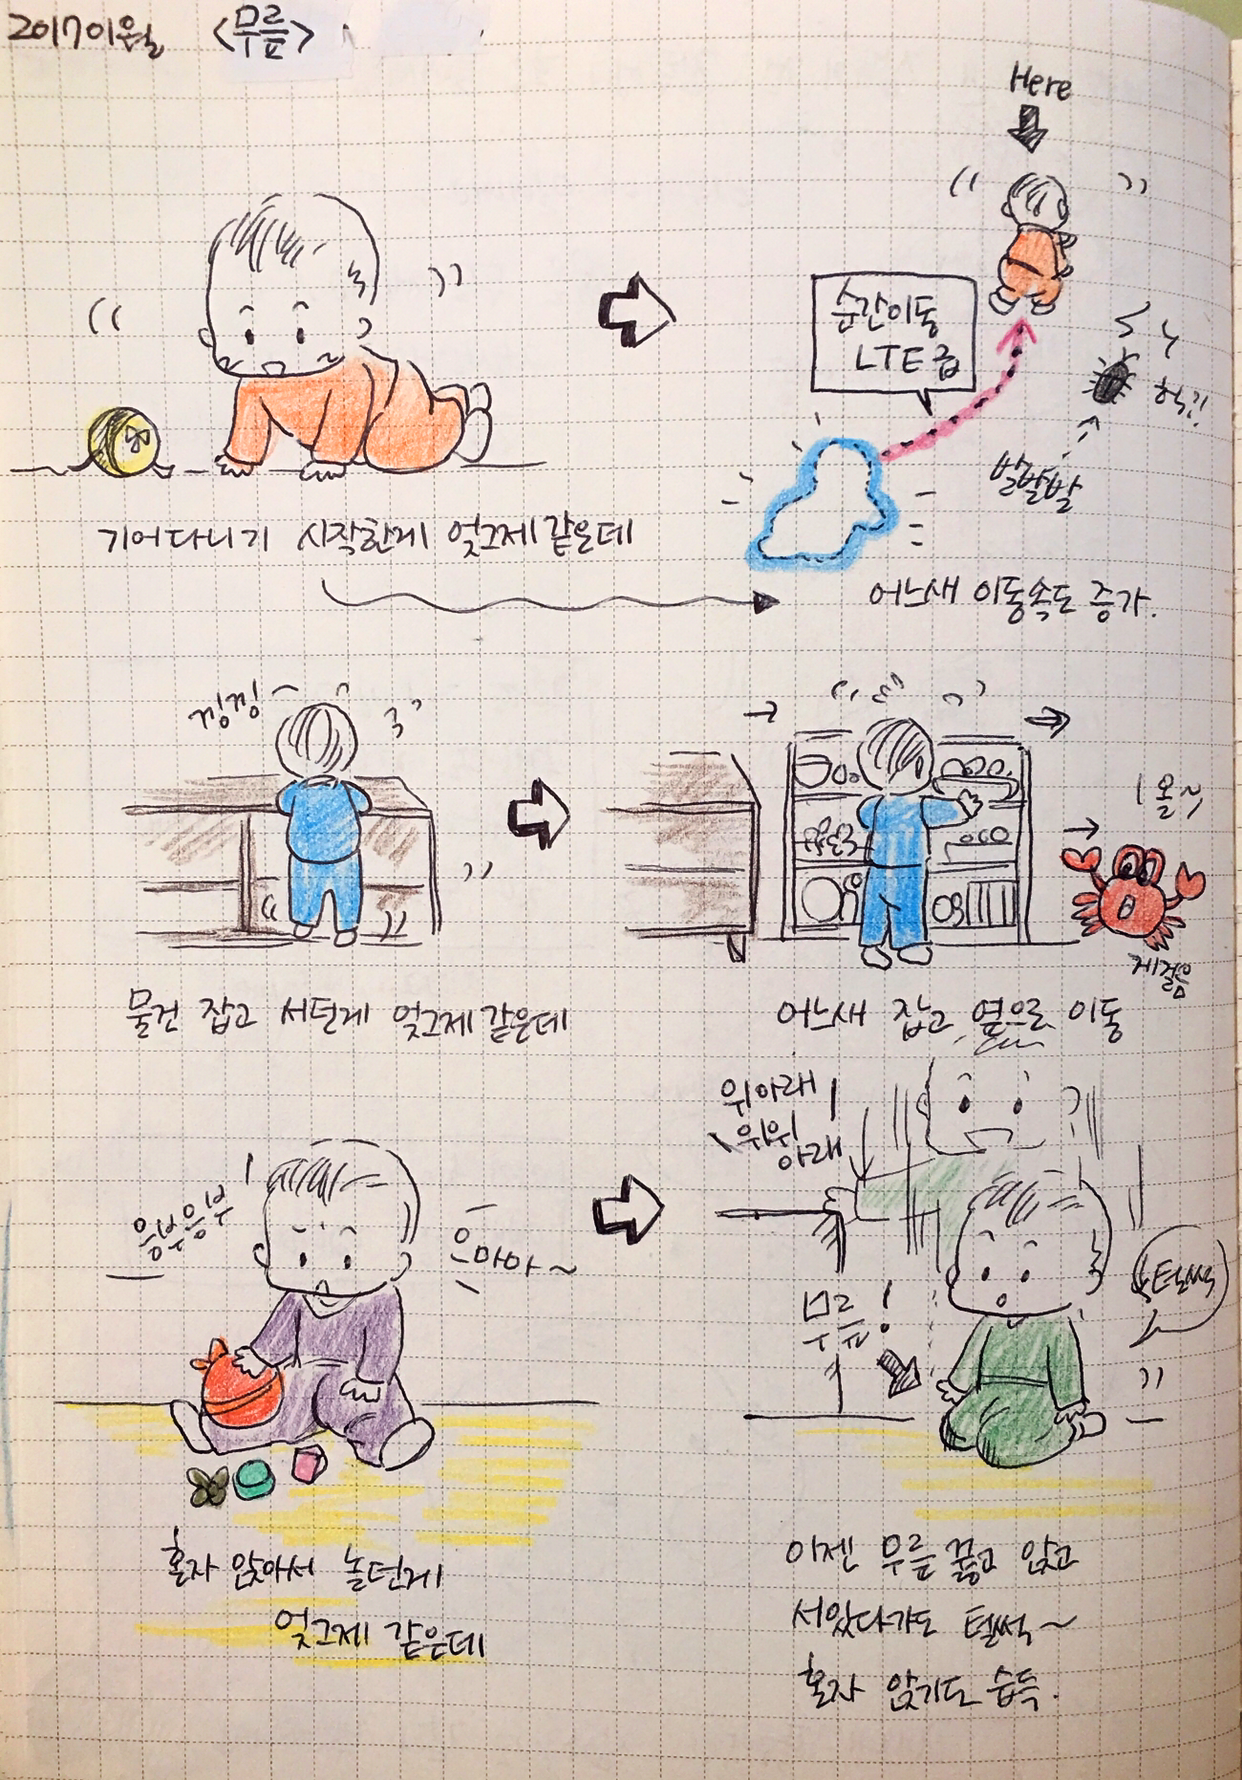 2017 01월 <무릎>
Here
순간이동
LTE급
헉?!
발발발
기어다니기 시작한게 엊그제 같은데
어느새 이동속도 증가.
낑낑~
올~
게걸음
물건 잡고 서던게 엊그제 같은데
어느새 잡고 옆으로 이동
위아래
위위
아래
응부응부
으마마~
무릎!
털썩
혼자 앉아서 놀던게
엊그제 같은데
이젠 무릎 꿇고 앉고
서있다가도 털썩~
혼자 앉기도 습득.